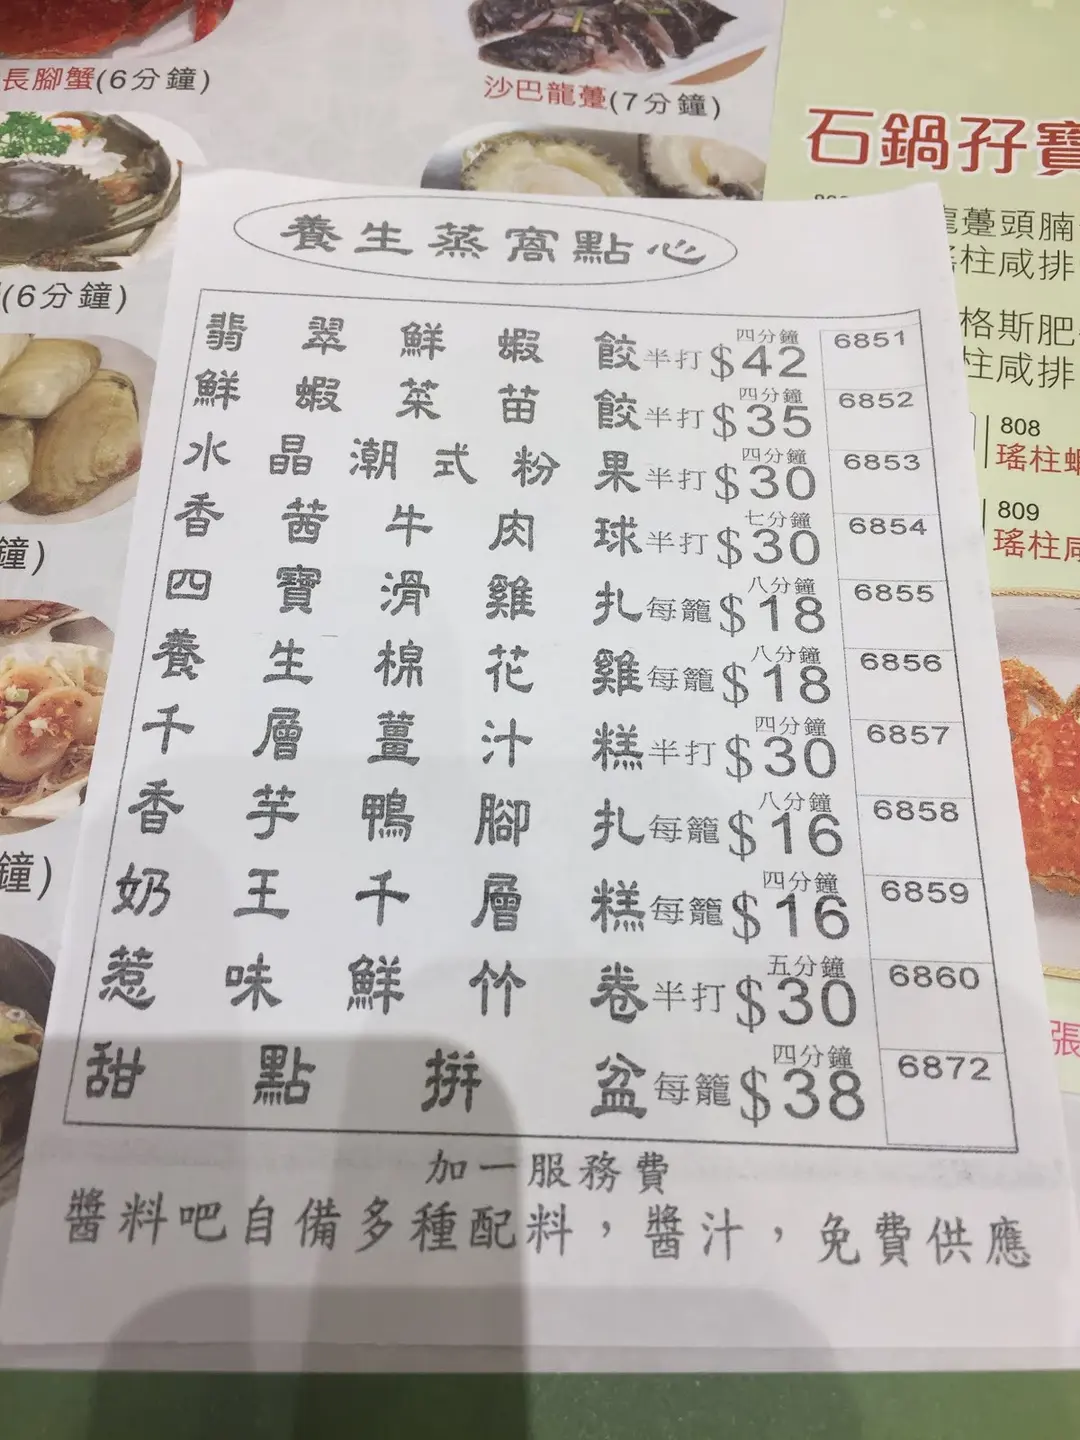 長腳蟹(6分鐘)
沙巴龍躉(7分鐘)
石鍋孖寶
(6分鐘)
龍躉頭腩
瑤柱咸排
格斯肥
柱咸排
808
瑤柱蝦
809
瑤柱咸
鐘)
鐘)
張
養生蒸窩點心
翡翠鮮蝦餃半打 四分鐘 $42 6851
鮮蝦菜苗餃半打 四分鐘 $35 6852
水晶潮式粉果半打 四分鐘 $30 6853
香茜牛肉球半打 七分鐘 $30 6854
四寶滑雞扎每籠 八分鐘 $18 6855
養生棉花雞每籠 八分鐘 $18 6856
千層薑汁糕半打 四分鐘 $30 6857
香芋鴨腳扎每籠 八分鐘 $16 6858
奶王千層糕每籠 四分鐘 $16 6859
惹味鮮竹卷半打 五分鐘 $30 6860
甜點拼盆每籠 四分鐘 $38 6872
加一服務費
醬料吧自備多種配料，醬汁，免費供應